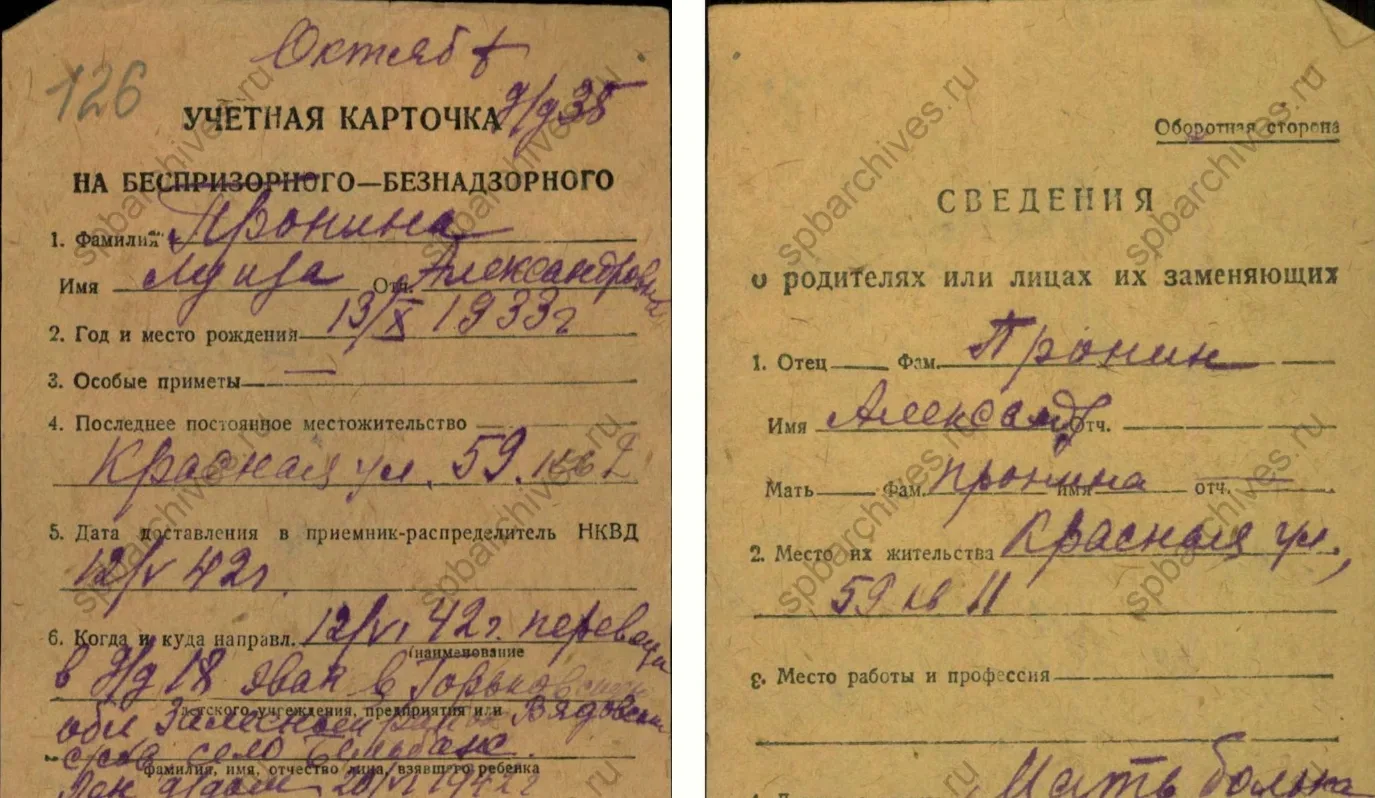 Октяб
126
д/д 38
УЧЕТНАЯ КАРТОЧКА
НА БЕСПРИЗОРНОГО—БЕЗНАДЗОРНОГО
1. Фамилия Пронина
Имя Луиза Отч. Александровна
2. Год и место рождения 13/X 1933 г
3. Особые приметы —
4. Последнее постоянное местожительство
Красная ул. 59. кв 2
5. Дата доставления в приемник-распределитель НКВД
12/V 42 г.
6. Когда и куда направл. 12/VI 42 г. перевед
(наименование
в д/д 18 эвак в Горьковскую
детского учреждения, предприятия или
обл
с/сов село
фамилия, имя, отчество лица, взявшего ребенка
20/VI 1942 г
Оборотная сторона
СВЕДЕНИЯ
о родителях или лицах их заменяющих
1. Отец Фам. Пронин
Имя Александр Отч.
Мать Фам. Пронина имя отч.
2. Место их жительства Красная ул.,
59 кв 11
3. Место работы и профессия
Мать больна
spbarchives.ru
spbarchives.ru
spbarchives.ru
spbarchives.ru
spbarchives.ru
spbarchives.ru
spbarchives.ru
spbarchives.ru